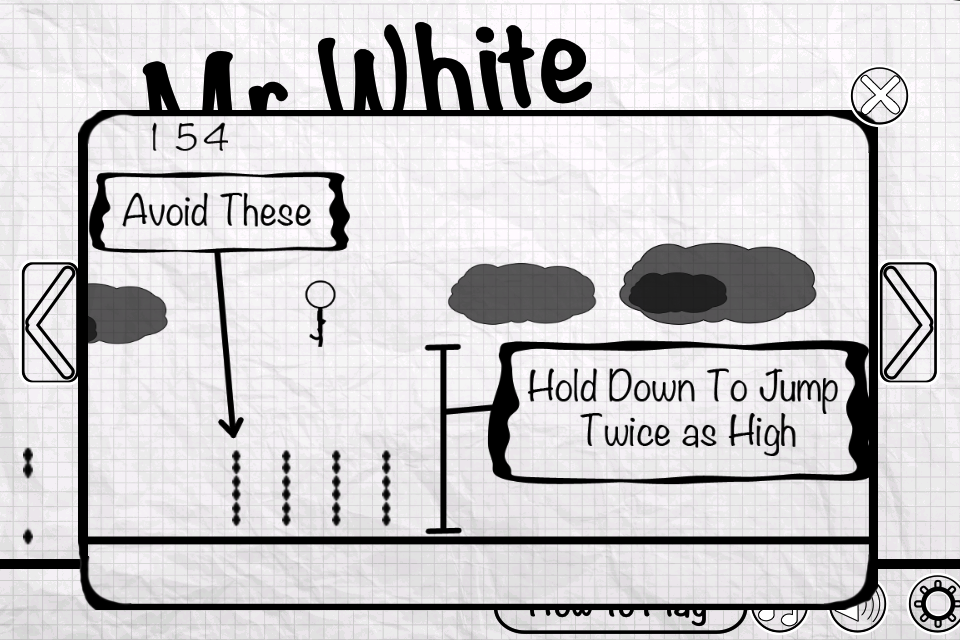 Mr White
154
Avoid These
Hold Down To Jump
Twice as High
How To Play